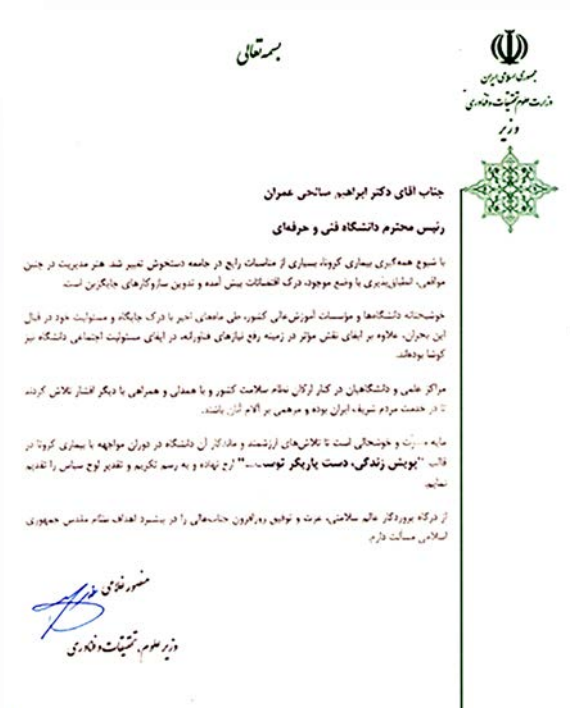 بسمه‌تعالی
جمهوری اسلامی ایران
وزارت علوم تحقیقات و فناوری
وزیر
جناب آقای دکتر ابراهیم صالحی عمران
رئیس محترم دانشگاه فنی و حرفه‌ای
با شیوع همه‌گیری بیماری کرونا، بسیاری از مناسبات رایج در جامعه دستخوش تغییر شد. هنر مدیریت در چنین
مواقعی، انطباق‌پذیری با وضع موجود، درک اقتضائات پیش آمده و تدوین سازوکارهای جایگزین است.
خوشبختانه دانشگاه‌ها و مؤسسات آموزش‌عالی کشور، طی ماه‌های اخیر با درک جایگاه و مسئولیت خود در قبال
این بحران، علاوه بر ایفای نقش مؤثر در زمینه رفع نیازهای فناورانه، در ایفای مسئولیت اجتماعی دانشگاه نیز
کوشا بوده‌اند.
مراکز علمی و دانشگاهیان در کنار ارکان نظام سلامت کشور و با همدلی و همراهی با دیگر اقشار تلاش کردند
تا در خدمت مردم شریف ایران بوده و مرهمی بر آلام آنان باشند.
مایه مسرّت و خوشحالی است تا تلاش‌های ارزشمند و ماندگار آن دانشگاه در دوران مواجهه با بیماری کرونا در
قالب "پویش زندگی، دست یاریگر توست..." ارج نهاده و به رسم تکریم و تقدیر لوح سپاس را تقدیم
نمایم.
از درگاه پروردگار عالم سلامتی، عزت و توفیق روزافزون جناب‌عالی را در پیشبرد اهداف نظام مقدس جمهوری
اسلامی مسألت دارم.
منصور غلامی
وزیر علوم، تحقیقات و فناوری